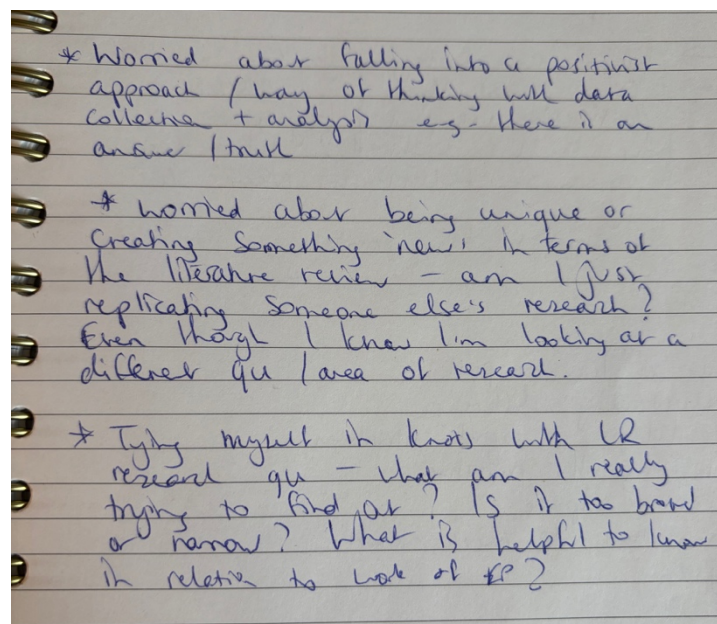 * Worried about falling into a positivist
approach / way of thinking with data
collection + analysis eg- there is an
answer / truth
* Worried about being unique or
creating something 'new' in terms of
the literature review – am I just
replicating someone else's research?
Even though I know I'm looking at a
different qu / area of research.
* Tying myself in knots with LR
research qu – what am I really
trying to find out? Is it too broad
or narrow? What is helpful to know
in relation to work of EP?